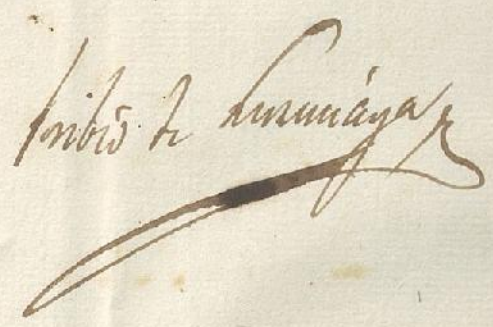 Toribio de Luzuriaga